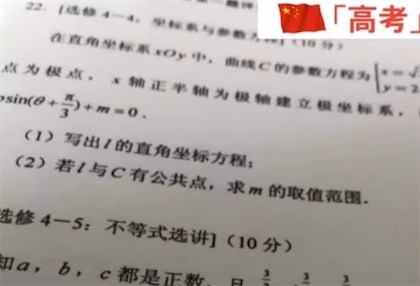 「高考
22. [选修 4—4: 坐标系与参数方程] (10 分)
在直角坐标系 xOy 中, 曲线 C 的参数方程为 {x=√
y=2
点为极点, x 轴正半轴为极轴建立极坐标系,
ρsin(θ+π/3)+m=0.
(1) 写出 l 的直角坐标方程;
(2) 若 l 与 C 有公共点, 求 m 的取值范围.
选修 4—5: 不等式选讲] (10 分)
知 a, b, c 都是正数, 且